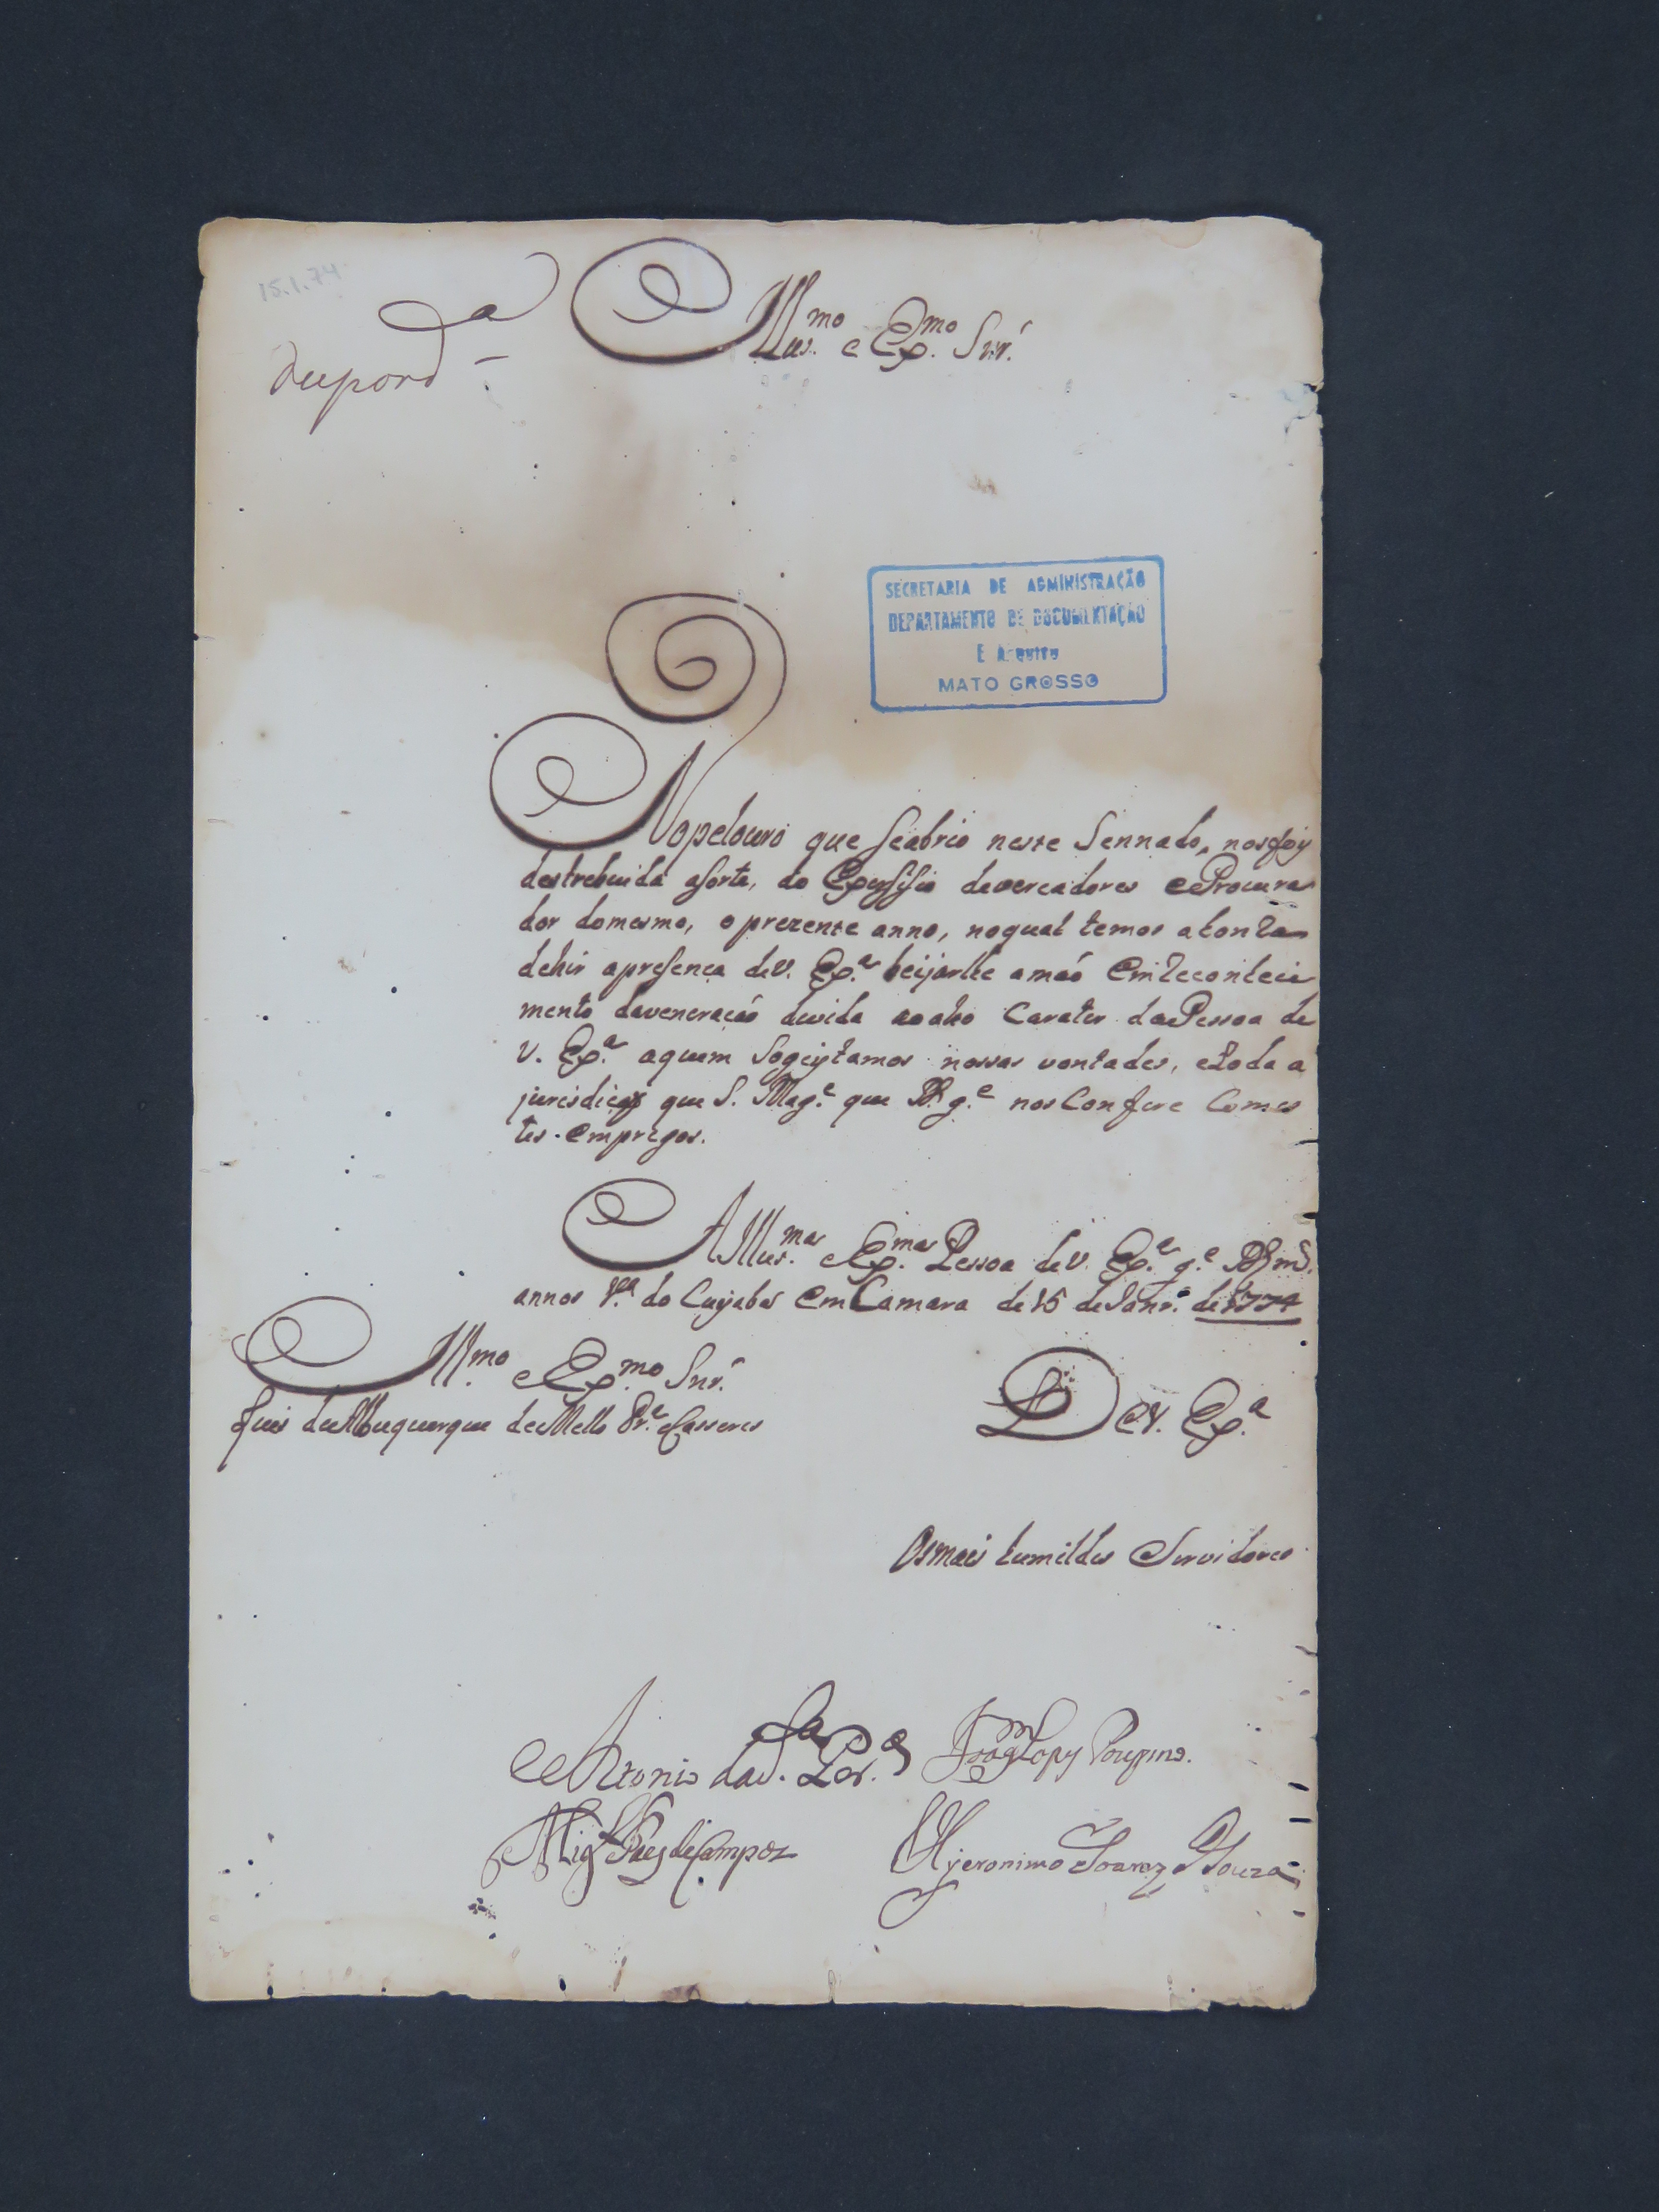 15.1.74
Illus.mo e Ex.mo Snr.
SECRETARIA DE ADMINISTRAÇÃO
DEPARTAMENTO DE DOCUMENTAÇÃO
E ARQUIVO
MATO GROSSO
Nopelouro que Seabrio neste Sennado, nosfoy
destrebuida aSorte, do Exerssisio devereadores eProcura
dor domesmo, o prezente anno, noqual temos ahonra
dehir apresença deV. Ex.a beijarlhe amaó Emreconheci
mento daveneraçaó devida aoalto Carater daPessoa de
V. Ex.a aquem Sogeytamos nossas vontades, etoda a
jurisdiçaõ que S. Mag.e que Ds. g.e nosConfere Comes
tes Empregos.
AIllus.ma eEx.ma Pessoa deV. Ex.a g.e Ds m.s
annos V.a do Cuyaba EmCamara de 15 deJanr.o de 1774
Ill.mo eEx.mo Snr.
Luis deAlbuquerque deMello Pr.a eCasseres
DeV. Ex.a
Osmais humildes Servidores
Antonio daS.a Per.a
Joaõ Lopes Poupino.
Mig.l Paes de Campos
Hyeronimo Soarez Souza